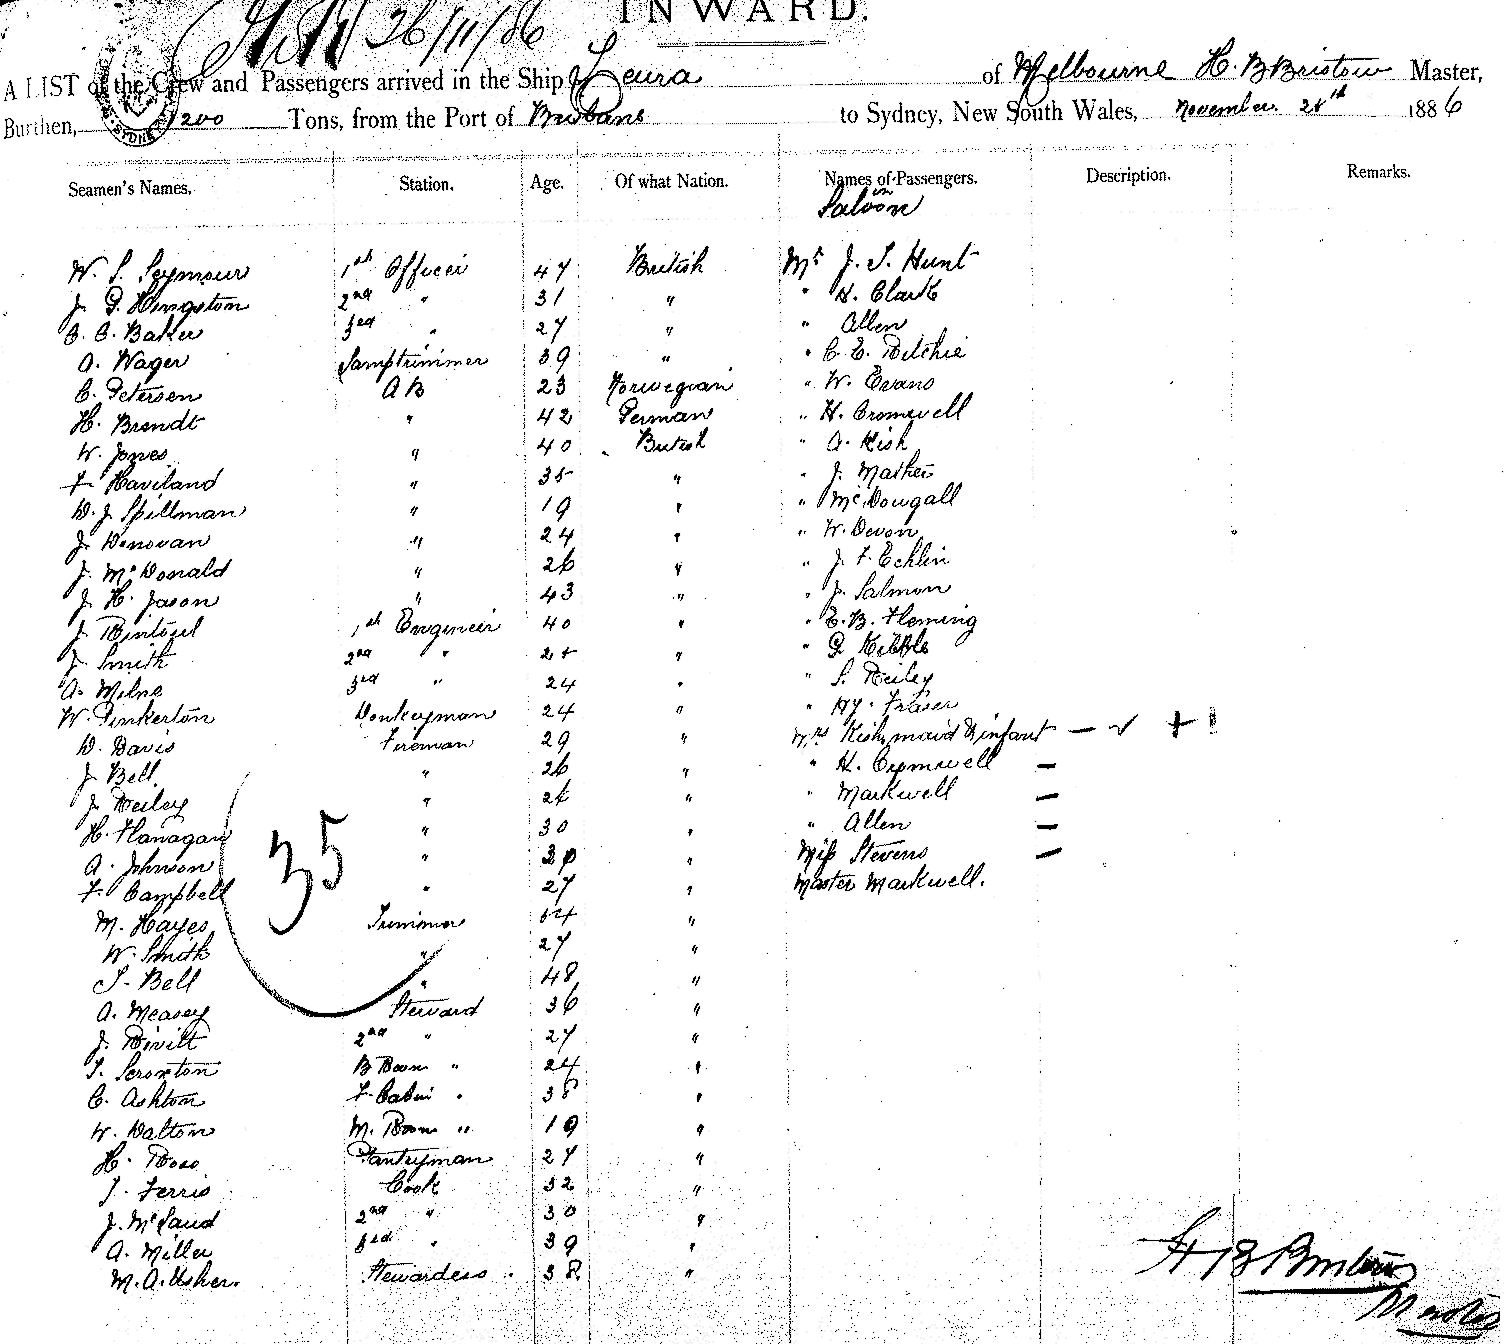 INWARD.
26/11/86
A LIST of the Crew and Passengers arrived in the Ship Leura of Melbourne H. B Bristow Master,
Burthen, 1200 Tons, from the Port of Brisbane to Sydney, New South Wales, November 28th 1886
Seamen's Names. Station. Age. Of what Nation. Names of Passengers. Description. Remarks.
in
Saloon
W. S. Seymour 1st Officer 47 British Mr J. S. Hunt
J. G. Kingston 2nd " 31 " " H. Clark
C. C. Baker 3rd " 27 " " Allen
A. Wager Lamptrimmer 39 " " C. E. Ritchie
C. Petersen AB 23 Norwegian " W. Evans
H. Brandt " 42 German " H. Cromwell
W. Jones " 40 British " A. Kish
F Haviland " 35 " " J. Mather
D. J. Spillman " 19 " " McDougall
J. Donovan " 24 " " W. Devon
J. McDonald " 26 " " J. F. Echlin
J. H. Jason " 43 " " J. Salmon
J. Rintoul 1st Engineer 40 " " E. B. Fleming
J Smith 2nd " " " G. Kibble
A. Milne 3rd " 24 " " S. Reiley
W. Pinkerton Donkeyman 24 " " Hy. Fraser
D. Davis Fireman 29 " Mrs Kish, maid & infant
J. Bell " 26 " " H. Cromwell
J. Reiley " 26 " " Markwell
H. Flanagan " 30 " " Allen
A. Johnson " 30 " Miss Stevens
F Campbell " 27 " Master Markwell.
35
M. Hayes Trimmer "
W. Smith " 27 "
T. Bell " 48 "
A. Measey Steward 36 "
J. Rivitt 2nd " 27 "
T. Scroxton B Room " 24 "
C. Ashton F. Cabin " 38 "
W. Dalton M. Room " 19 "
H. Ross Pantryman 27 "
J. Ferris Cook 32 "
J. McLaud 2nd " 30 "
A. Miller 3rd " 39 "
M. A. Usher. Stewardess. 38 "
H B Bristow
Master